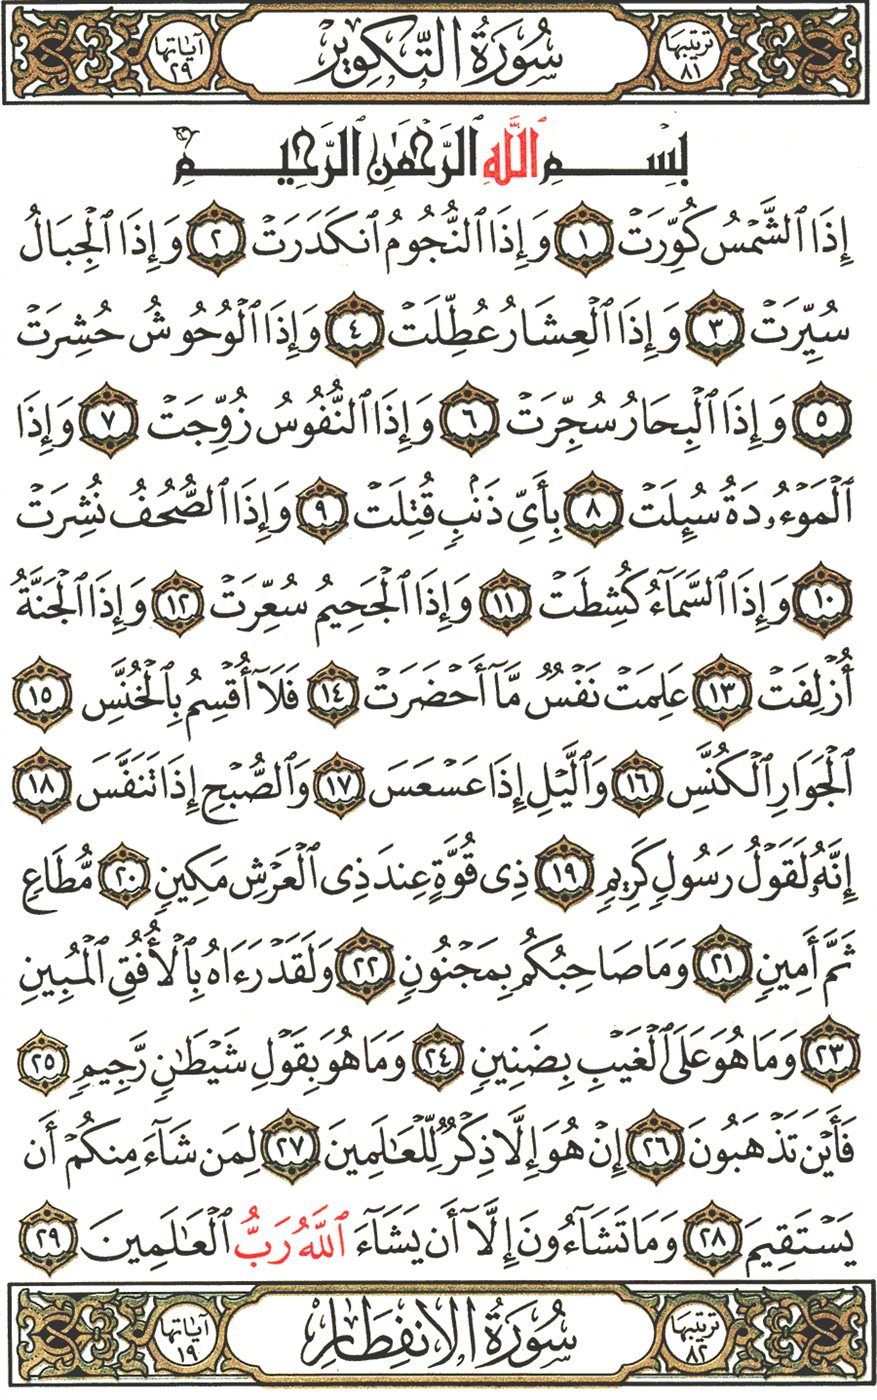 ترتيبها ٨١ سُورَةُ التَّكْوِيرِ آياتها ٢٩
بِسْمِ ٱللَّهِ ٱلرَّحْمَٰنِ ٱلرَّحِيمِ
إِذَا ٱلشَّمْسُ كُوِّرَتْ ١ وَإِذَا ٱلنُّجُومُ ٱنكَدَرَتْ ٢ وَإِذَا ٱلْجِبَالُ
سُيِّرَتْ ٣ وَإِذَا ٱلْعِشَارُ عُطِّلَتْ ٤ وَإِذَا ٱلْوُحُوشُ حُشِرَتْ
٥ وَإِذَا ٱلْبِحَارُ سُجِّرَتْ ٦ وَإِذَا ٱلنُّفُوسُ زُوِّجَتْ ٧ وَإِذَا
ٱلْمَوْءُۥدَةُ سُئِلَتْ ٨ بِأَىِّ ذَنۢبٍ قُتِلَتْ ٩ وَإِذَا ٱلصُّحُفُ نُشِرَتْ
١٠ وَإِذَا ٱلسَّمَآءُ كُشِطَتْ ١١ وَإِذَا ٱلْجَحِيمُ سُعِّرَتْ ١٢ وَإِذَا ٱلْجَنَّةُ
أُزْلِفَتْ ١٣ عَلِمَتْ نَفْسٌ مَّآ أَحْضَرَتْ ١٤ فَلَآ أُقْسِمُ بِٱلْخُنَّسِ ١٥
ٱلْجَوَارِ ٱلْكُنَّسِ ١٦ وَٱلَّيْلِ إِذَا عَسْعَسَ ١٧ وَٱلصُّبْحِ إِذَا تَنَفَّسَ ١٨
إِنَّهُۥ لَقَوْلُ رَسُولٍ كَرِيمٍ ١٩ ذِى قُوَّةٍ عِندَ ذِى ٱلْعَرْشِ مَكِينٍ ٢٠ مُّطَاعٍ
ثَمَّ أَمِينٍ ٢١ وَمَا صَاحِبُكُم بِمَجْنُونٍ ٢٢ وَلَقَدْ رَءَاهُ بِٱلْأُفُقِ ٱلْمُبِينِ
٢٣ وَمَا هُوَ عَلَى ٱلْغَيْبِ بِضَنِينٍ ٢٤ وَمَا هُوَ بِقَوْلِ شَيْطَٰنٍ رَّجِيمٍ ٢٥
فَأَيْنَ تَذْهَبُونَ ٢٦ إِنْ هُوَ إِلَّا ذِكْرٌ لِّلْعَٰلَمِينَ ٢٧ لِمَن شَآءَ مِنكُمْ أَن
يَسْتَقِيمَ ٢٨ وَمَا تَشَآءُونَ إِلَّآ أَن يَشَآءَ ٱللَّهُ رَبُّ ٱلْعَٰلَمِينَ ٢٩
ترتيبها ٨٢ سُورَةُ الِانْفِطَارِ آياتها ١٩